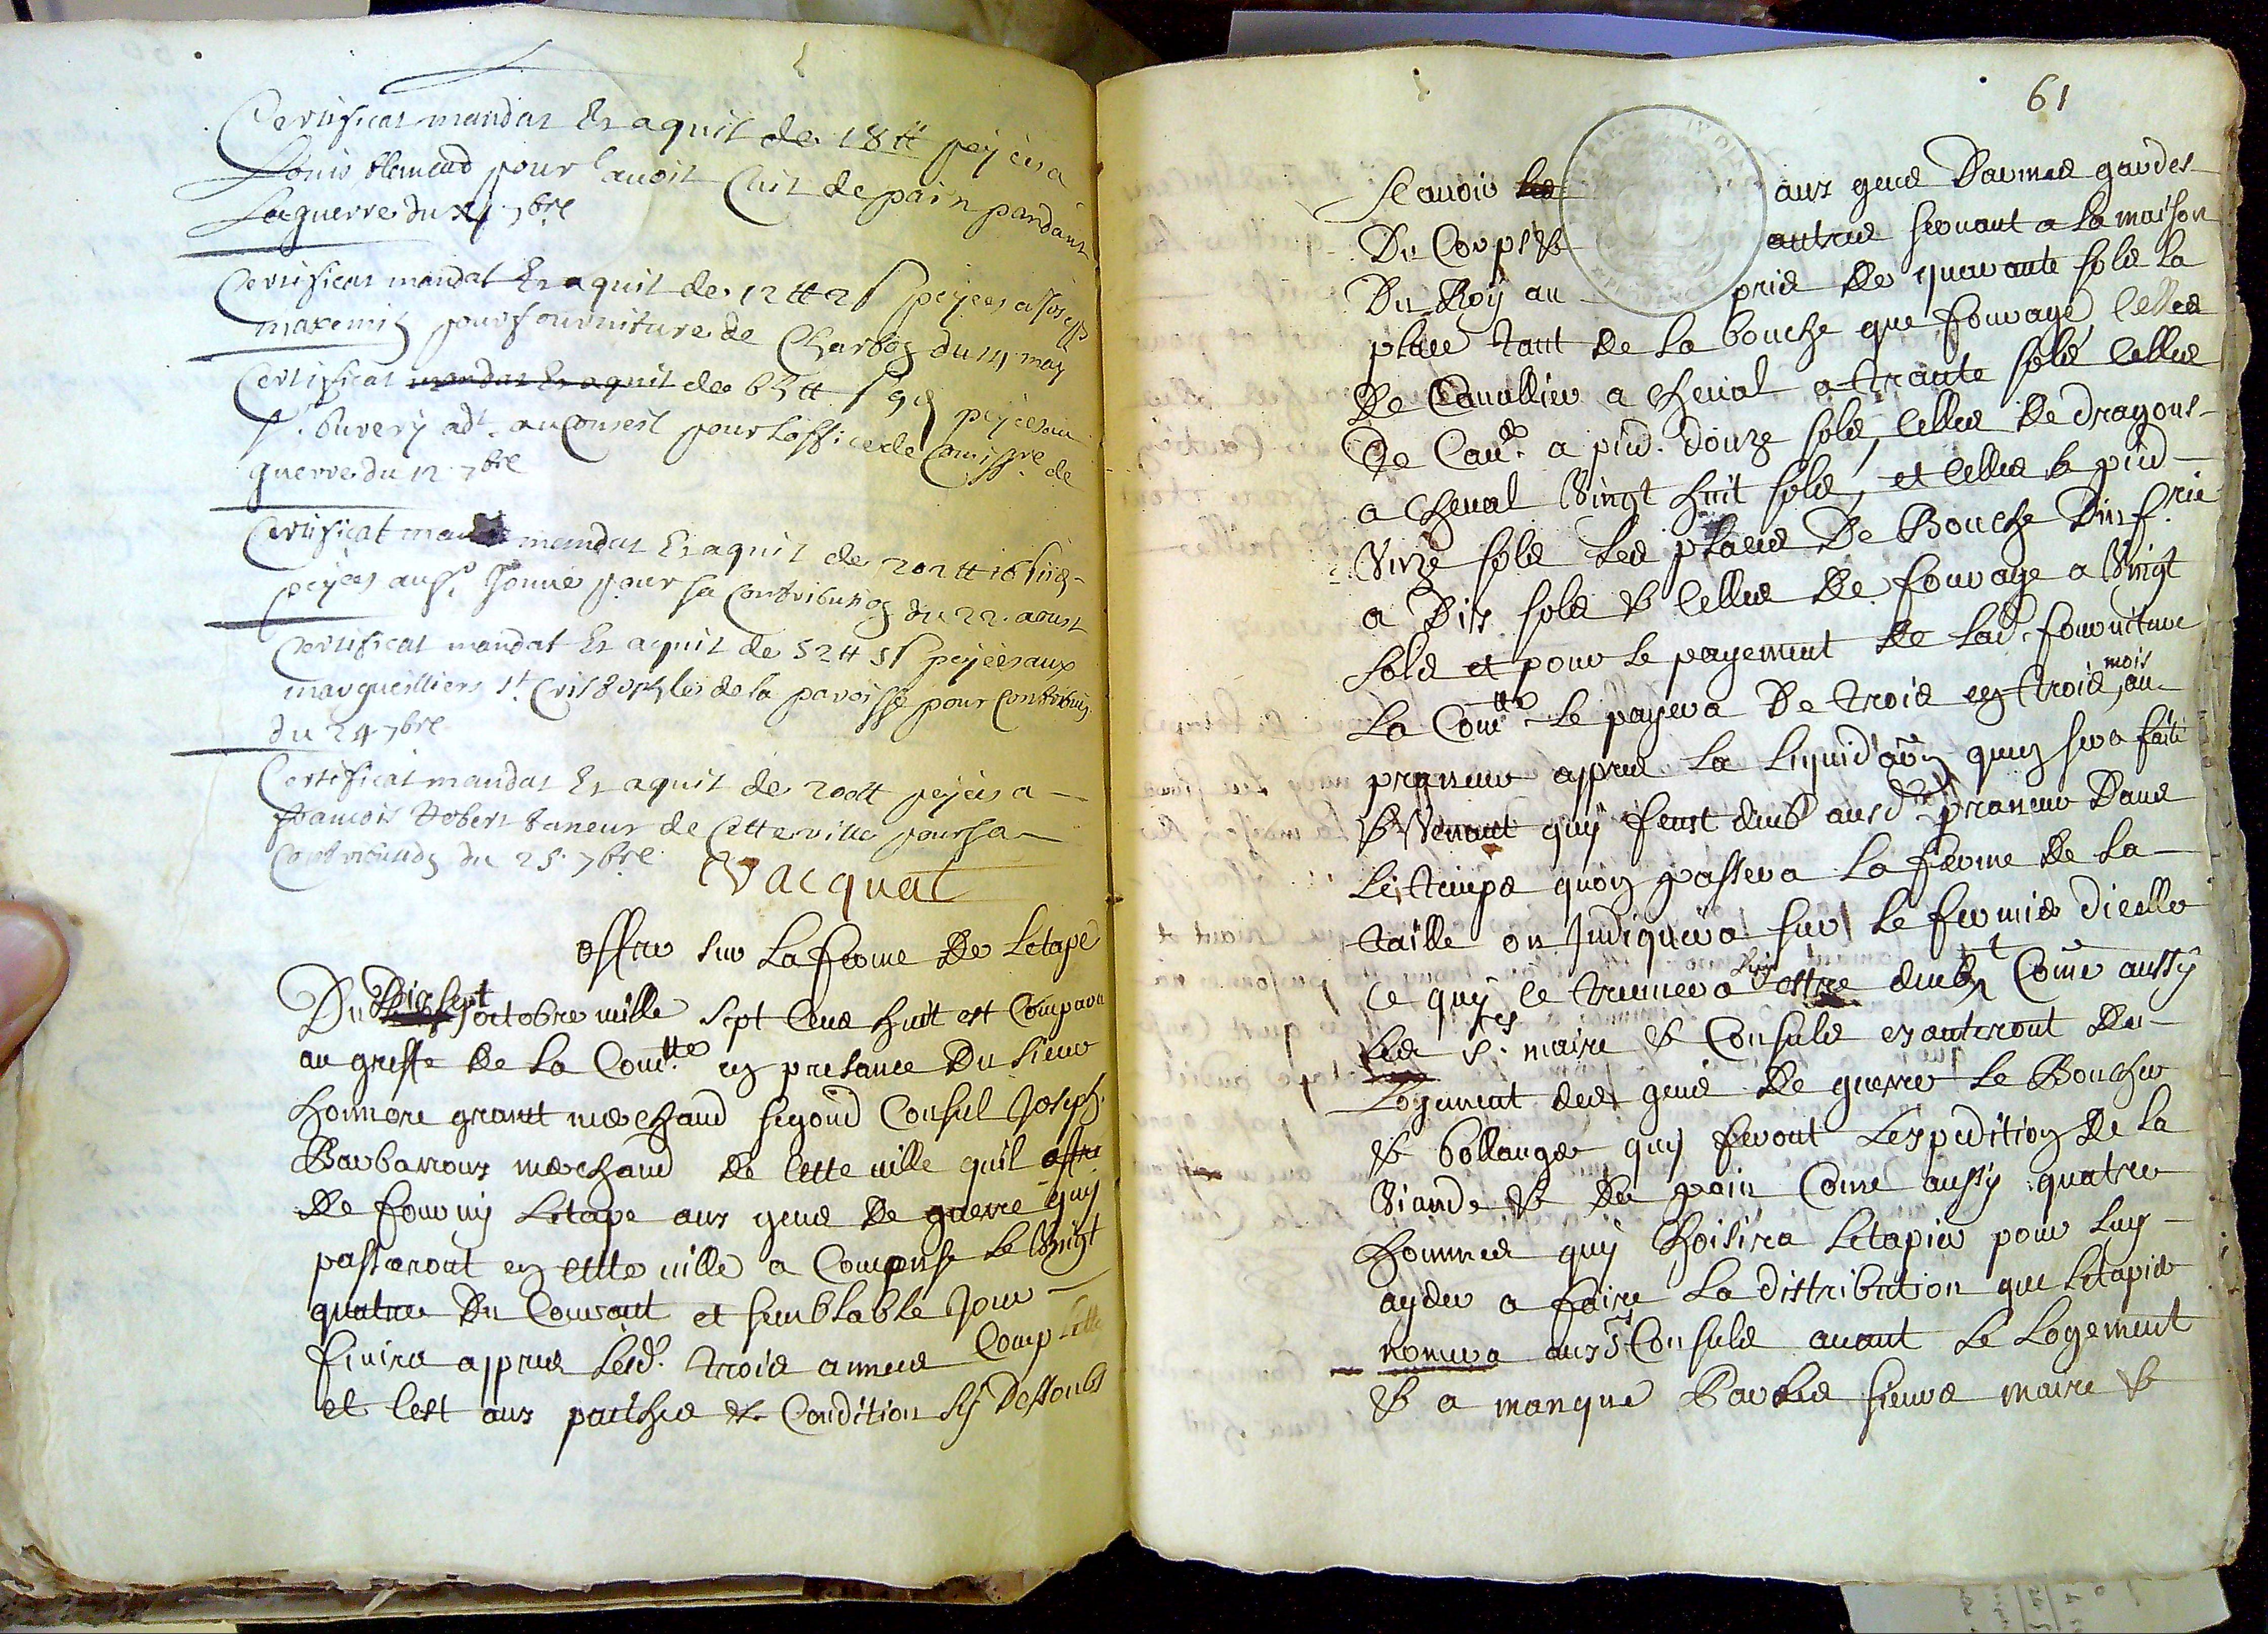 Certificat mandat Et aquit de 18 tt peyées a
Louis pour avoir Cuit de pain pandant
La guerre du 7bre
Certificat mandat Et aquit de 12 tt 2 s peyées a Joseph
maxemin pour fourniture de Charbon du 14 may
Certificat mandat Et aquit de peyées au
Sr. buvery adt. au Conseil pour Loffice de Comissre de
guerre du 12 7bre
Certificat mandat Et aquit de 202 tt 16 s
peyées au Sr. pour sa Contribution du 22. aoust
Certificat mandat Et aquit de 52 tt 5 s peyées aux
margueilliers St de la paroisse pour Contribution
du 24 7bre
Certificat mandat Et aquit de 200 tt peyées a
francois Robert de Cette ville pour sa
Contribution du 25. 7bre
Vacquat
offre sur La ferme De Letape
Du Dix sept octobre mille sept Cens huit est Comparu
au greffe de La Comtte en presance Du Sieur
honnore granet marchand segond Consul Joseph
Barbaroux marchand de Cette ville quil offre
De fournir Letape aux gens De guerre quy
passeront en Cette ville a Comp le Vingt
quatre Du Courant et semblable Jour
finira appres lesd. trois années Complette
et Cest aux paches & Condition sy Dessoubs
61
Scavoir aux gens Darmes gardes
Du Corps & autres servant a La maison
Du Roy au pris De quarante sols La
place tant de La bouche que fourage Celles
De Cavallier a Cheval a trante sols Celles
De Cav. a pied. douze sols, Celles De dragons
a Cheval Vingt huit sols, et Celles a pied
Unze sols Les places De Bouche Dinf.rie
a Dix sols & Celles De fourage a Vingt
sols et pour Le payement De Lad. fourniture
La Comtte Le payera De trois en trois mois au
preneur appres La Liquidaon quen sera faite
& Venant quy feust deub ausd. preneur Dans
Le temps quon passera La ferme De La
taille on Indiquera sur Le fermier dicelle
Ce quy Ce treuvera Luy estre deub Come aussy
Les Srs. maire & Consuls exanteront Du
Logement des gens De guerre Le Boucher
& bollanger quy feront Lexpedition De La
Viande & Du pain Come aussy quatre
hommes quy Choisira Letapier pour Luy
ayder a faire La distribution que Letapier
nomera aux Srs Consuls avant Le Logement
& a manque Par Les sieurs maire &